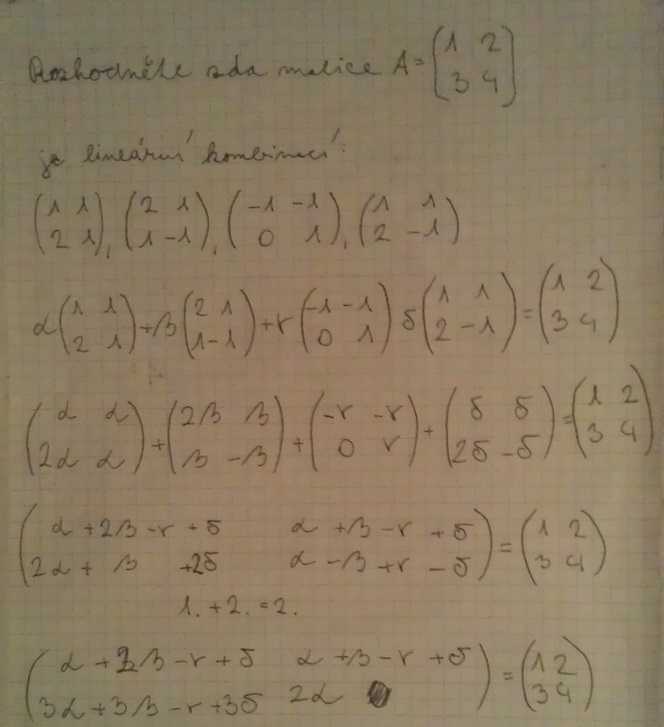 Rozhodněte zda matice A = (1 2 3 4)
je lineární kombinací:
(1 1 2 1), (2 1 1 -1), (-1 -1 0 1), (1 1 2 -1)
α(1 1 2 1) + β(2 1 1 -1) + r(-1 -1 0 1) δ(1 1 2 -1) = (1 2 3 4)
(α α 2α α) + (2β β β -β) + (-r -r 0 r) + (δ δ 2δ -δ) = (1 2 3 4)
(α + 2β - r + δ α + β - r + δ
2α + β + 2δ α - β + r - δ) = (1 2 3 4)
1. + 2. = 2.
(α + 2β - r + δ α + β - r + δ
3α + 3β - r + 3δ 2α) = (1 2 3 4)